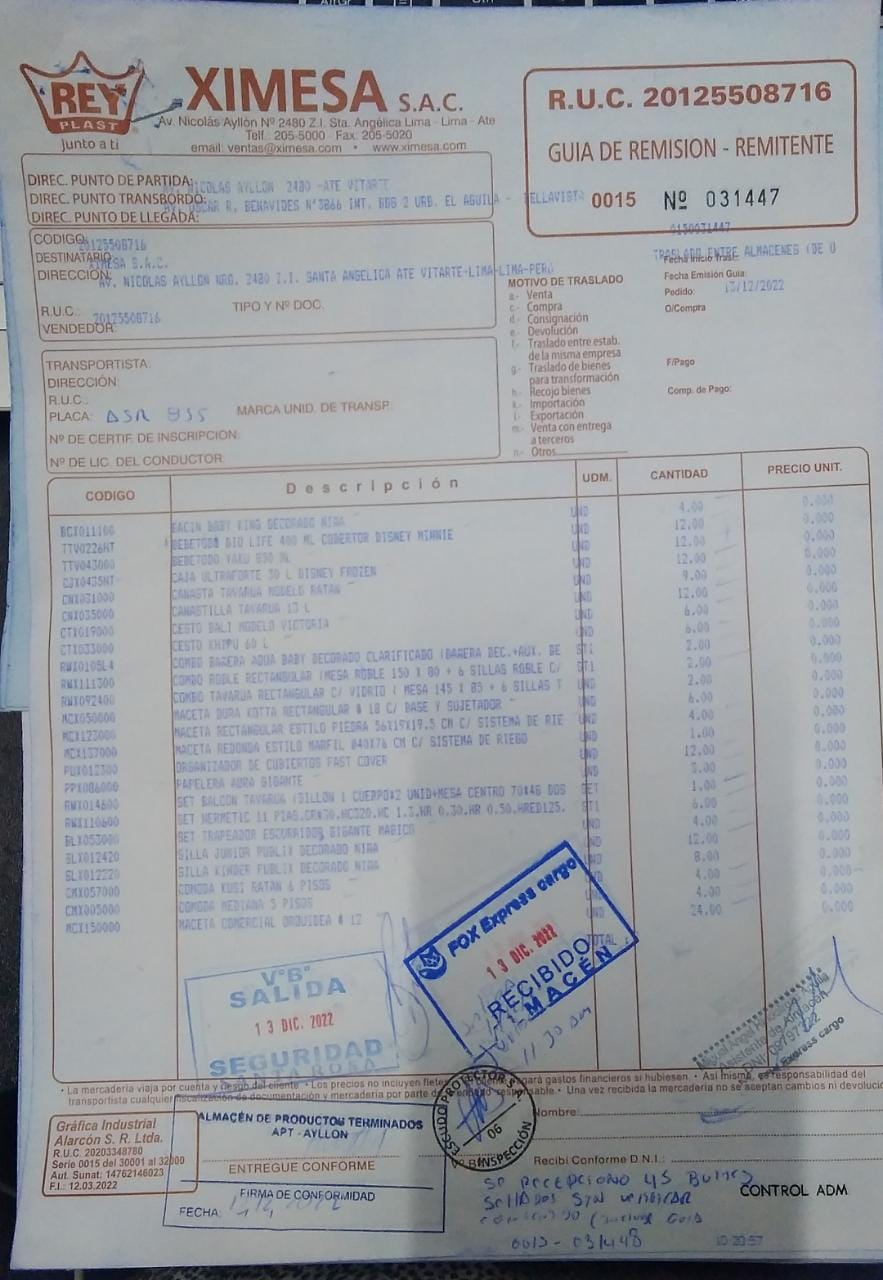 REY
PLAST
junto a ti
XIMESA S.A.C.
Av. Nicolás Ayllón Nº 2480 Z.I. Sta. Angélica Lima - Lima - Ate
Telf.: 205-5000 - Fax: 205-5020
email: ventas@ximesa.com • www.ximesa.com
R.U.C. 20125508716
GUIA DE REMISION - REMITENTE
0015 Nº 031447
0150031447
DIREC. PUNTO DE PARTIDA: AV. NICOLAS AYLLON 2480 -ATE VITARTE
DIREC. PUNTO TRANSBORDO: AV. OSCAR R. BENAVIDES N°3866 INT. BBB 2 URB. EL AGUILA - BELLAVISTA
DIREC. PUNTO DE LLEGADA:
CODIGO: 20125508716
DESTINATARIO: XIMESA S.A.C.
DIRECCIÓN: AV. NICOLAS AYLLON NRO. 2480 Z.I. SANTA ANGELICA ATE VITARTE-LIMA-LIMA-PERÚ
R.U.C.: 20125508716 TIPO Y Nº DOC.
VENDEDOR:
TRASLADO ENTRE ALMACENES (DE U
Fecha Inicio Trasl.:
Fecha Emisión Guia:
Pedido: 13/12/2022
O/Compra
F/Pago
Comp. de Pago:
MOTIVO DE TRASLADO
a.- Venta
c.- Compra
d.- Consignación
e.- Devolución
f.- Traslado entre estab.
de la misma empresa
g.- Traslado de bienes
para transformación
h.- Recojo bienes
k.- Importación
l.- Exportación
m.- Venta con entrega
a terceros
n.- Otros
TRANSPORTISTA:
DIRECCIÓN:
R.U.C.:
PLACA: MARCA UNID. DE TRANSP.
Nº DE CERTIF. DE INSCRIPCION:
Nº DE LIC. DEL CONDUCTOR
CODIGO Descripción UDM. CANTIDAD PRECIO UNIT.
BCX011100 BACIN BABY KING DECORADO NIRA UND 4.00 0.000
TTV0226NT BEBETODO BIO LIFE 400 ML COBERTOR DISNEY MINNIE UND 12.00 0.000
TTV043000 BEBETODO YAKU 850 ML UND 12.00 0.000
CJX0435NT CAJA ULTRAFORTE 30 L DISNEY FROZEN UND 12.00 0.000
CNX031000 CANASTA TAVARUA MODELO RATAN UND 9.00 0.000
CNX035000 CANASTILLA TAVARUA 13 L UND 12.00 0.000
CTX019000 CESTO BALI MODELO VICTORIA UND 6.00 0.000
CTX033000 CESTO KHIPU 60 L UND 6.00 0.000
RWX0105L4 COMBO BAÑERA AQUA BABY DECORADO CLARIFICADO (BAÑERA DEC.+AUX. DE ST1 2.00 0.000
RWX111300 COMBO ROBLE RECTANGULAR (MESA ROBLE 150 X 80 + 6 SILLAS ROBLE C/ ST1 2.00 0.000
RWX092400 COMBO TAVARUA RECTANGULAR C/ VIDRIO ( MESA 145 X 85 + 6 SILLAS T UND 2.00 0.000
MCX050000 MACETA DURA KOTTA RECTANGULAR # 18 C/ BASE Y SUJETADOR UND 6.00 0.000
MCX123000 MACETA RECTANGULAR ESTILO PIEDRA 56X19X19.5 CM C/ SISTEMA DE RIE UND 4.00 0.000
MCX137000 MACETA REDONDA ESTILO MARFIL Ø40X76 CM C/ SISTEMA DE RIEGO UND 1.00 0.000
PUX012300 ORGANIZADOR DE CUBIERTOS FAST COVER UND 12.00 0.000
PPX086000 PAPELERA AURA GIGANTE UND 3.00 0.000
RWX014600 SET BALCON TAVARUA (SILLON 1 CUERPO*2 UNID+MESA CENTRO 70*46 DOS SET 1.00 0.000
RWX110600 SET HERMETIC 11 PIAS.CR#30.HC320.HC 1.3.HR 0.30.HR 0.50.HRED125. ST1 6.00 0.000
BLX053000 SET TRAPEADOR ESCURRIDOR GIGANTE MAGICO UND 4.00 0.000
SLX012420 SILLA JUNIOR PUBLIX DECORADO NIRA UND 12.00 0.000
SLX012220 SILLA KINDER PUBLIX DECORADO NIRA UND 8.00 0.000
CMX057000 COMODA KUSI RATAN 6 PISOS UND 4.00 0.000
CMX005000 COMODA MEDIANA 5 PISOS UND 4.00 0.000
MCX150000 MACETA COMERCIAL ORQUIDEA # 12 UND 24.00 0.000
TOTAL :
VºBº
SALIDA
13 DIC. 2022
SEGURIDAD
FOX Express cargo
13 DIC. 2022
RECIBIDO
ALMACÉN
11 30 am
Asistente de Almacén
Fox Express cargo
• La mercaderia viaja por cuenta y riesgo del cliente • Los precios no incluyen flete gastos financieros si hubiesen. • Asi mismo, es responsabilidad del
transportista cualquier fiscalización de documentación y mercaderia por parte de Una vez recibida la mercaderia no se aceptan cambios ni devoluciones
Gráfica Industrial
Alarcón S. R. Ltda.
R.U.C. 20203348780
Serie 0015 del 30001 al 32000
Aut. Sunat: 14762146023
F.I.: 12.03.2022
ALMACÉN DE PRODUCTOS TERMINADOS
APT - AYLLON
ENTREGUE CONFORME
FIRMA DE CONFORMIDAD
FECHA:
ESCUDO PROTECTOR S.
06
INSPECCIÓN
Nombre:
VºBº
Recibí Conforme D.N.I.:
SE RECEPCIONO 45 BULTOS
SELLADOS SIN VERIFICAR
0015 - 031448
CONTROL ADM
10:20:57